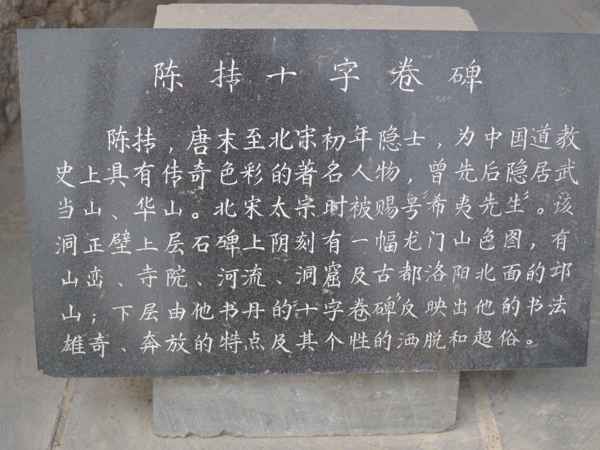 陈抟十字卷碑
陈抟，唐末至北宋初年隐士，为中国道教
史上具有传奇色彩的著名人物，曾先后隐居武
当山、华山。北宋太宗时被赐号“希夷先生”。该
洞正壁上层石碑上阴刻有一幅龙门山色图，有
山峦、寺院、河流、洞窟及古都洛阳北面的邙
山；下层由他书丹的“十字卷碑”反映出他的书法
雄奇、奔放的特点及其个性的洒脱和超俗。